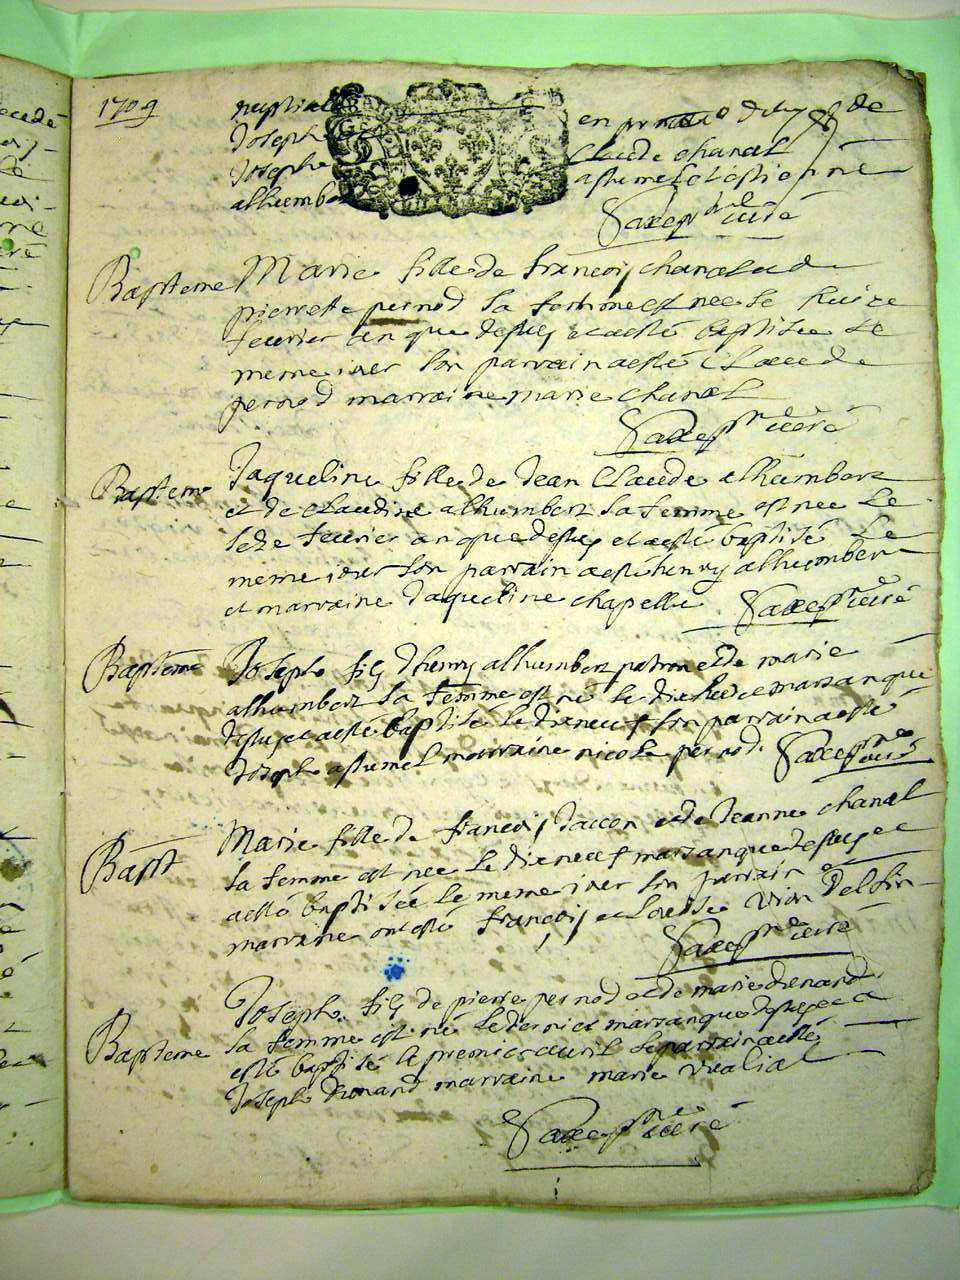 1709
nuptiale en presence de
Joseph Claude chanal
Joseph
alhumbert
curé
Bapteme Marie fille de françois chanal et de
pierrete pernod sa femme est nee le
feurier an que desus et a esté baptisée le
meme iour son parrain a esté Claude
pernod marraine marie chanal
curé
Bapteme Jaqueline fille de Jean Claude alhumbert
et de Claudine alhumbert sa femme est nee le
seze feurier an que desus et a esté baptisé le
meme iour son parrain a esté henry alhumbert
et marraine Jaqueline chapelle curé
Bapteme Joseph fils d'henry alhumbert patron et de marie
alhumbert sa femme est né le mars an que
desus et a esté baptisé le dixneuf son parrain a esté
Joseph marraine nicole pernod. curé
Bapt Marie fille de françois Jaccon et de Jeanne chanal
sa femme est nee le dixneuf mars an que desus et
a esté baptisée le meme iour son parrain et
marraine ont esté françois et Louise Vion Delfin
curé
Bapteme Joseph fils de pierre pernod et de marie
sa femme est né le dernier mars an que desus et a
esté baptisé le premier auril le parrain a esté
Joseph marraine marie
curé